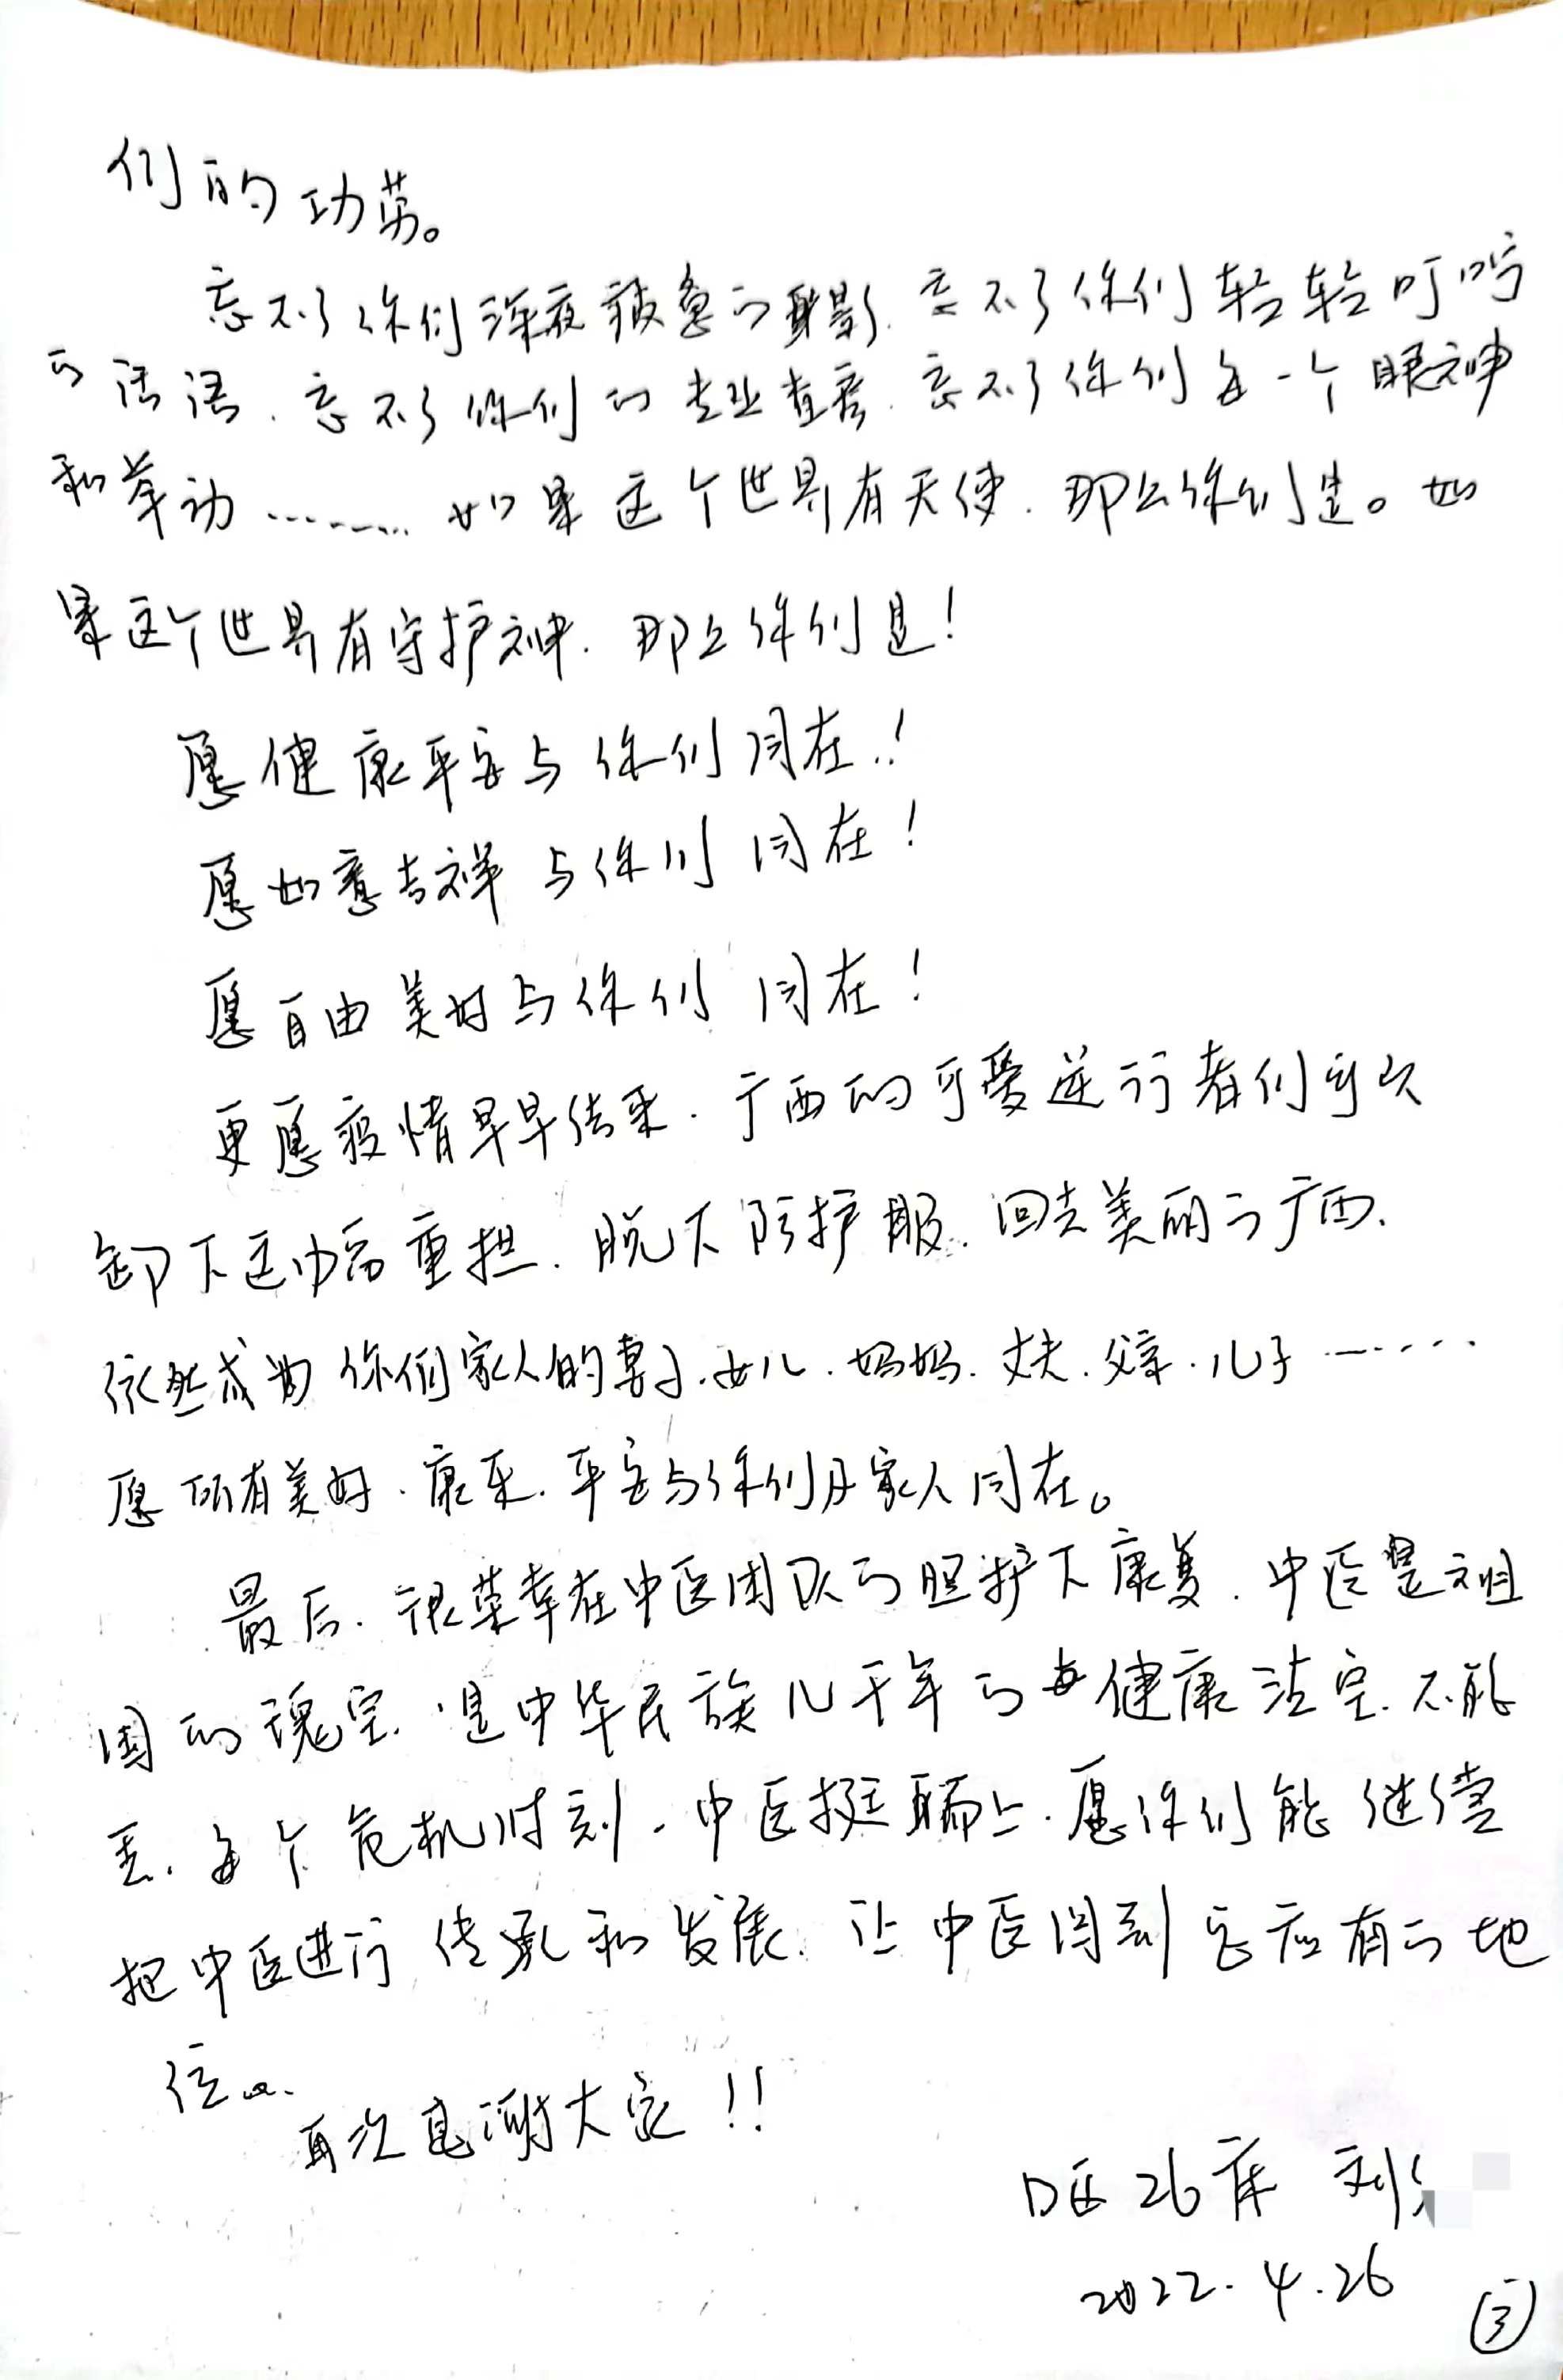 们的功劳。
忘不了你们深夜救急的身影，忘不了你们轻轻叮咛
的话语，忘不了你们的专业查房，忘不了你们每一个眼神
和举动………如果这个世界有天使，那么你们是。如
果这个世界有守护神，那么你们是！
愿健康平安与你们同在！
愿如意吉祥与你们同在！
愿自由美好与你们同在！
更愿疫情早早结束，广西的可爱逆行者们可以
卸下这幅重担，脱下防护服，回去美丽的广西，
依然成为你们家人的妻子、女儿、妈妈、丈夫、父亲、儿子……
愿所有美好、康乐、平安与你们及家人同在。
最后，很荣幸在中医团队的照护下康复，中医是祖
国的瑰宝，是中华民族几千年的健康法宝，不能
丢，每个危机时刻，中医挺身而上，愿你们能继续
把中医进行传承和发展，让中医得到它应有的地
位。
再次感谢大家！！
D区26床 刘
2022.4.26
③